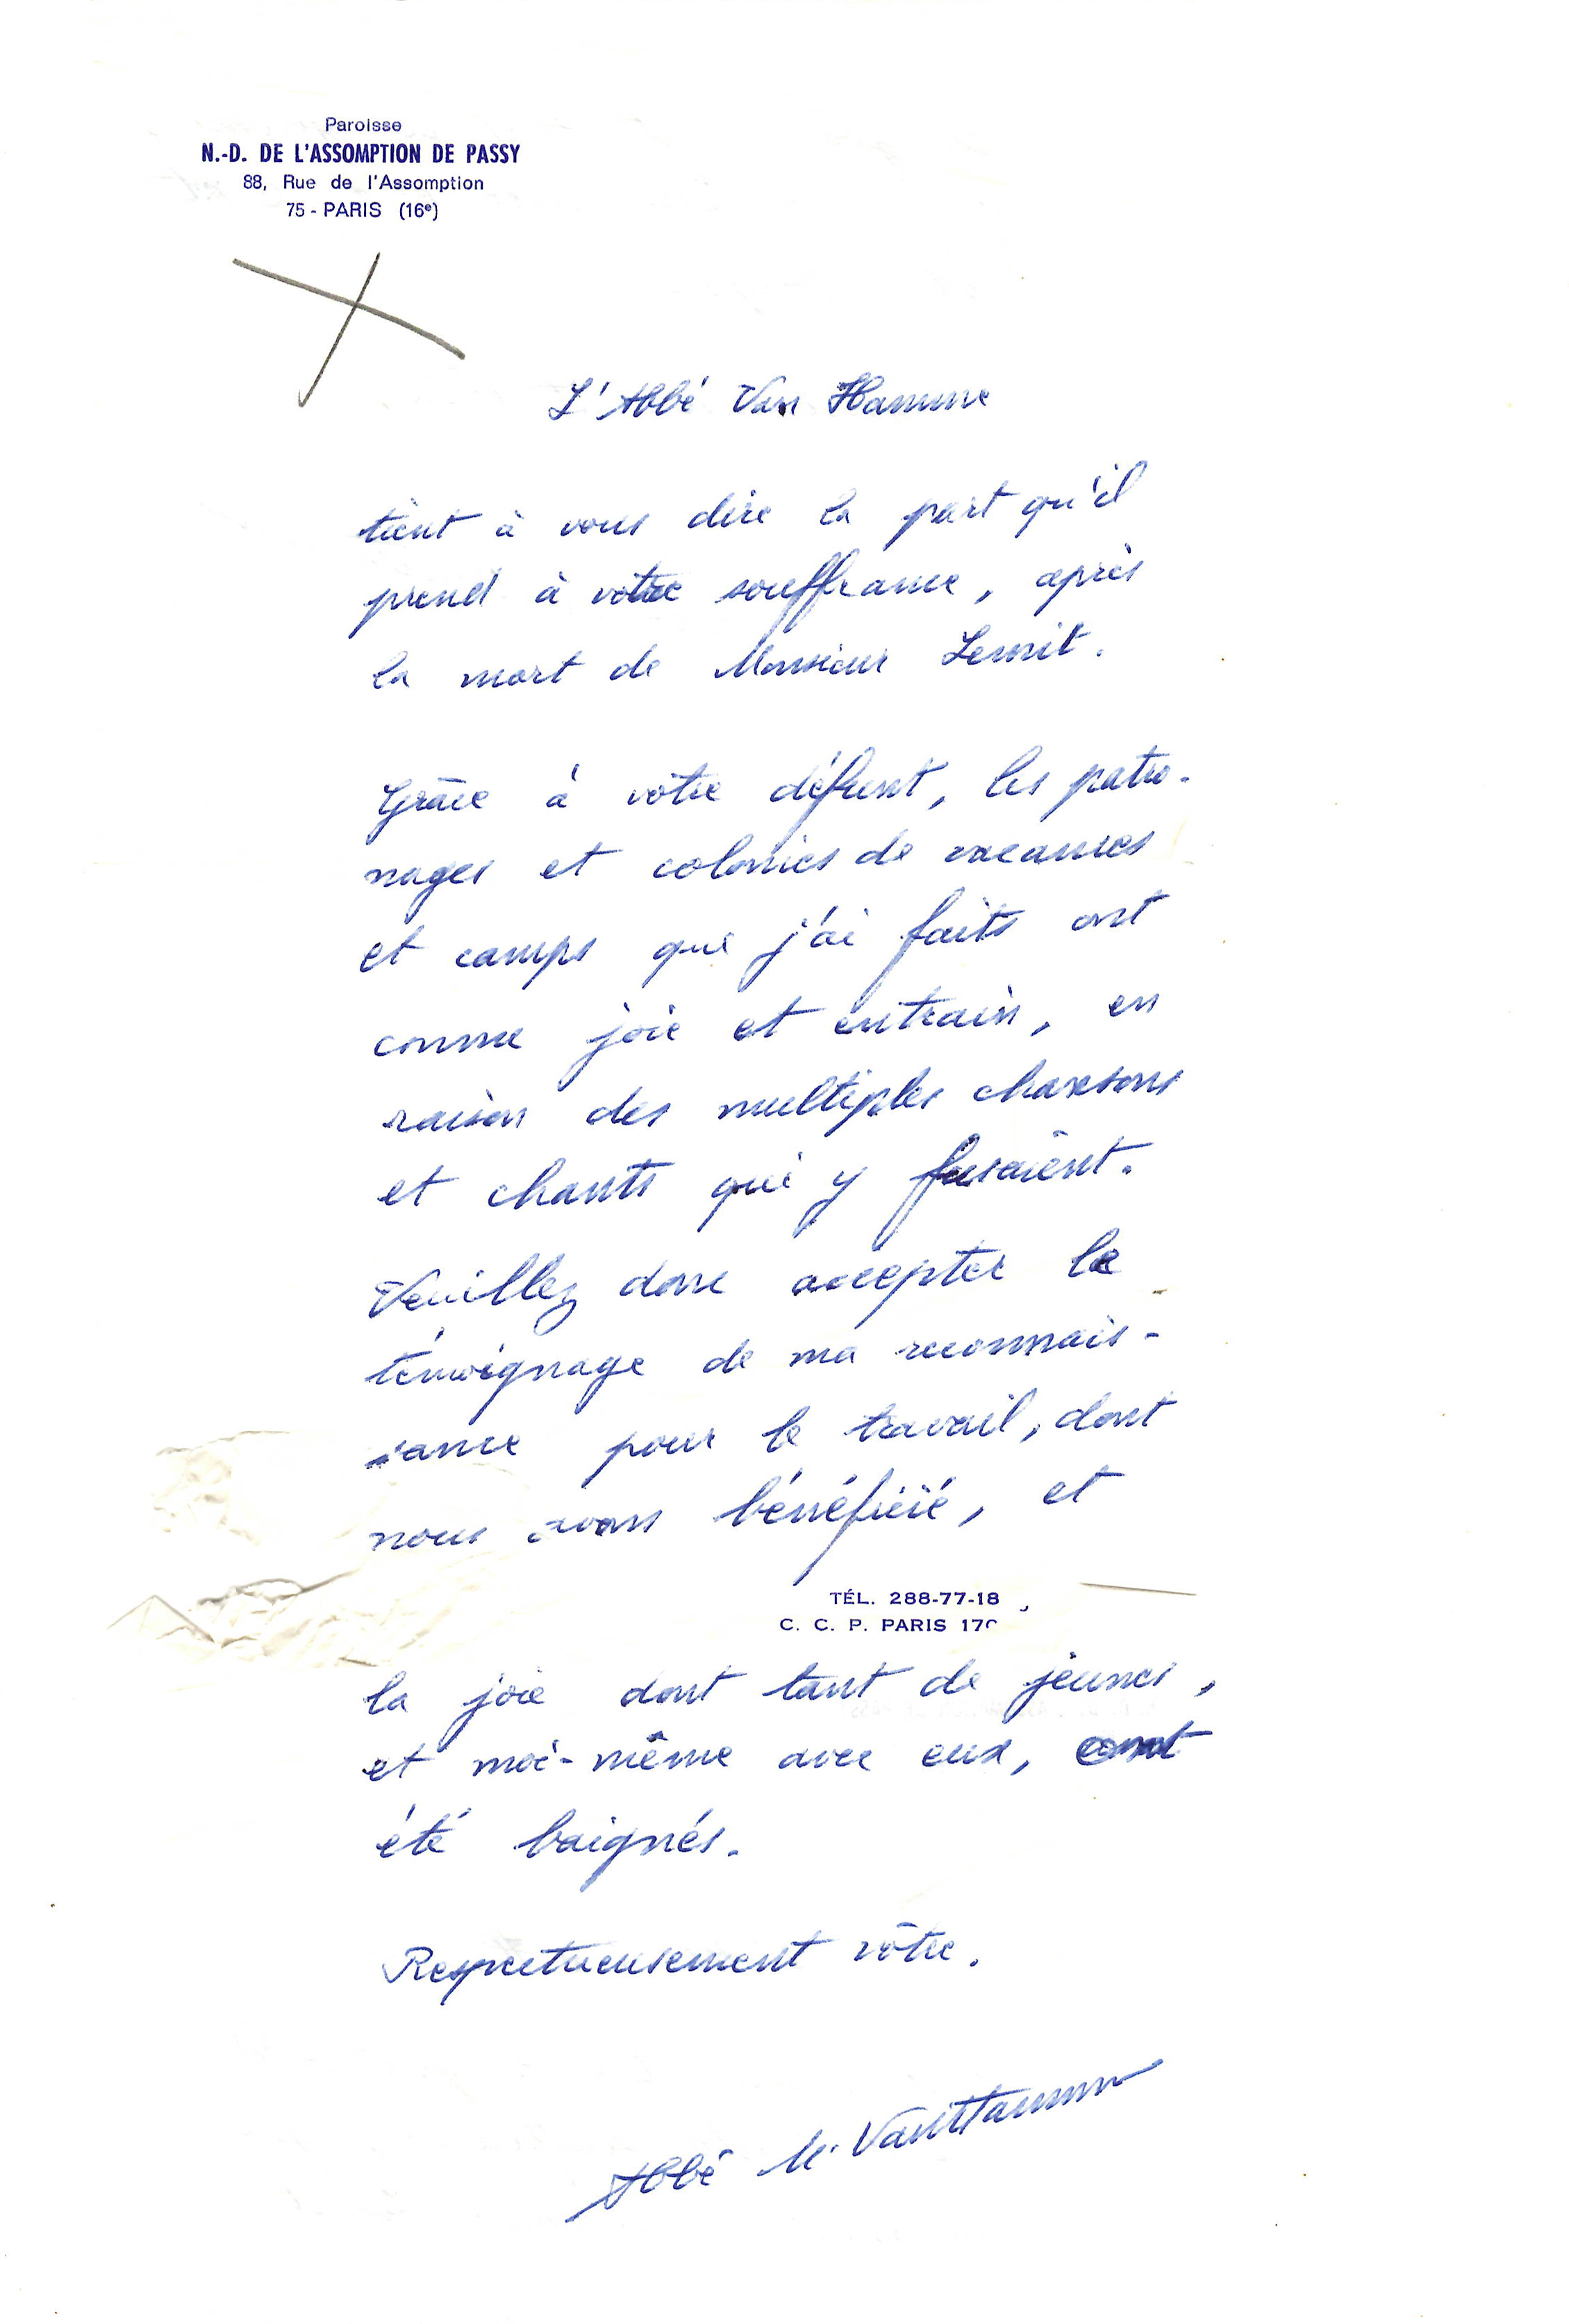 Paroisse
N.-D. DE L'ASSOMPTION DE PASSY
88, Rue de l'Assomption
75 - PARIS (16e)
L'Abbé Van Hamme
tient à vous dire la part qu'il
prend à votre souffrance, après
la mort de Monsieur Lemit.
Grâce à votre défunt, les patro-
nages et colonies de vacances
et camps que j'ai faits ont
connu joie et entrain, en
raison des multiples chansons
et chants qui y fusaient.
Veuillez donc accepter le
témoignage de ma reconnais-
sance pour le travail, dont
nous avons bénéficié, et
TÉL. 288-77-18
C. C. P. PARIS 17
la joie dont tant de jeunes,
et moi-même avec eux, ont
été baignés.
Respectueusement vôtre.
Abbé M. VanHamme